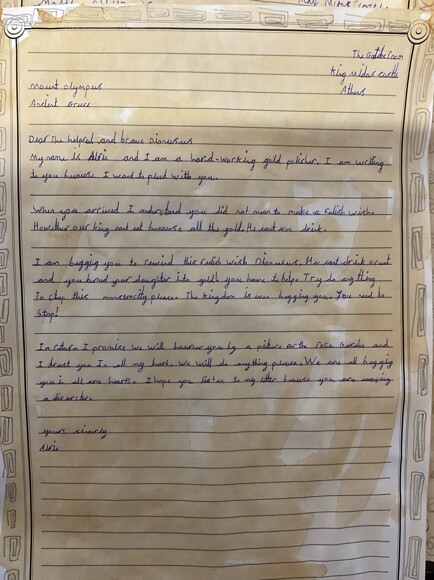 The Golden room
King midas castle
Athens
mount olympus
Ancient Greece
Dear The helpful and brave Dionusus
My name is Alfie and I am a hard-working gold polisher. I am writing
to you because I want to plead with you.
When you arrived I understand you did not mean to make a Fulish wish.
However our king cant eat because all the gold. He cant even drink.
I am begging you to rewind this Fulish wish Dionusus. He cant drink or eat
and you turned your daughter into gold you have to help. Try do anything
To stop this monstrosity please. The Kingdom is even begging you. You need to
Stop!
In return I promise we will honour you by a picture on the rose Garden and
I trust you In all my hart. We will do anything please. We are all begging
you in all are hearts. I hope you listen to my letter because you are amazing
yours sincerly
Alfie